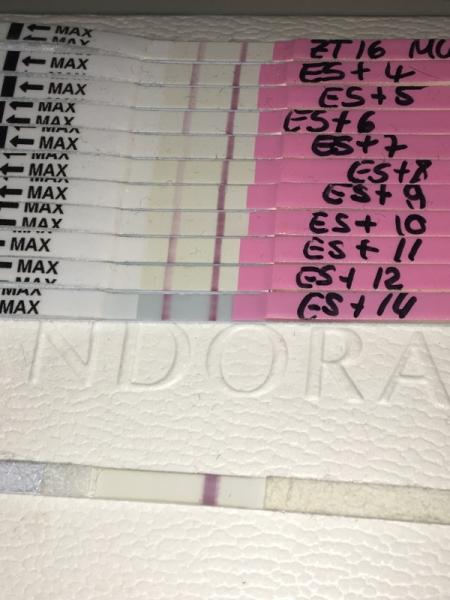 ← MAX
← MAX ZT16
← MAX ES+4
← MAX ES+5
← MAX
← MAX ES+6
MAX
← MAX ES+7
MAX
← MAX ES+8
MAX
← MAX ES+9
MAX
← MAX ES+10
MAX ES+11
← MAX ES+12
MAX
MAX ES+14
NDORA